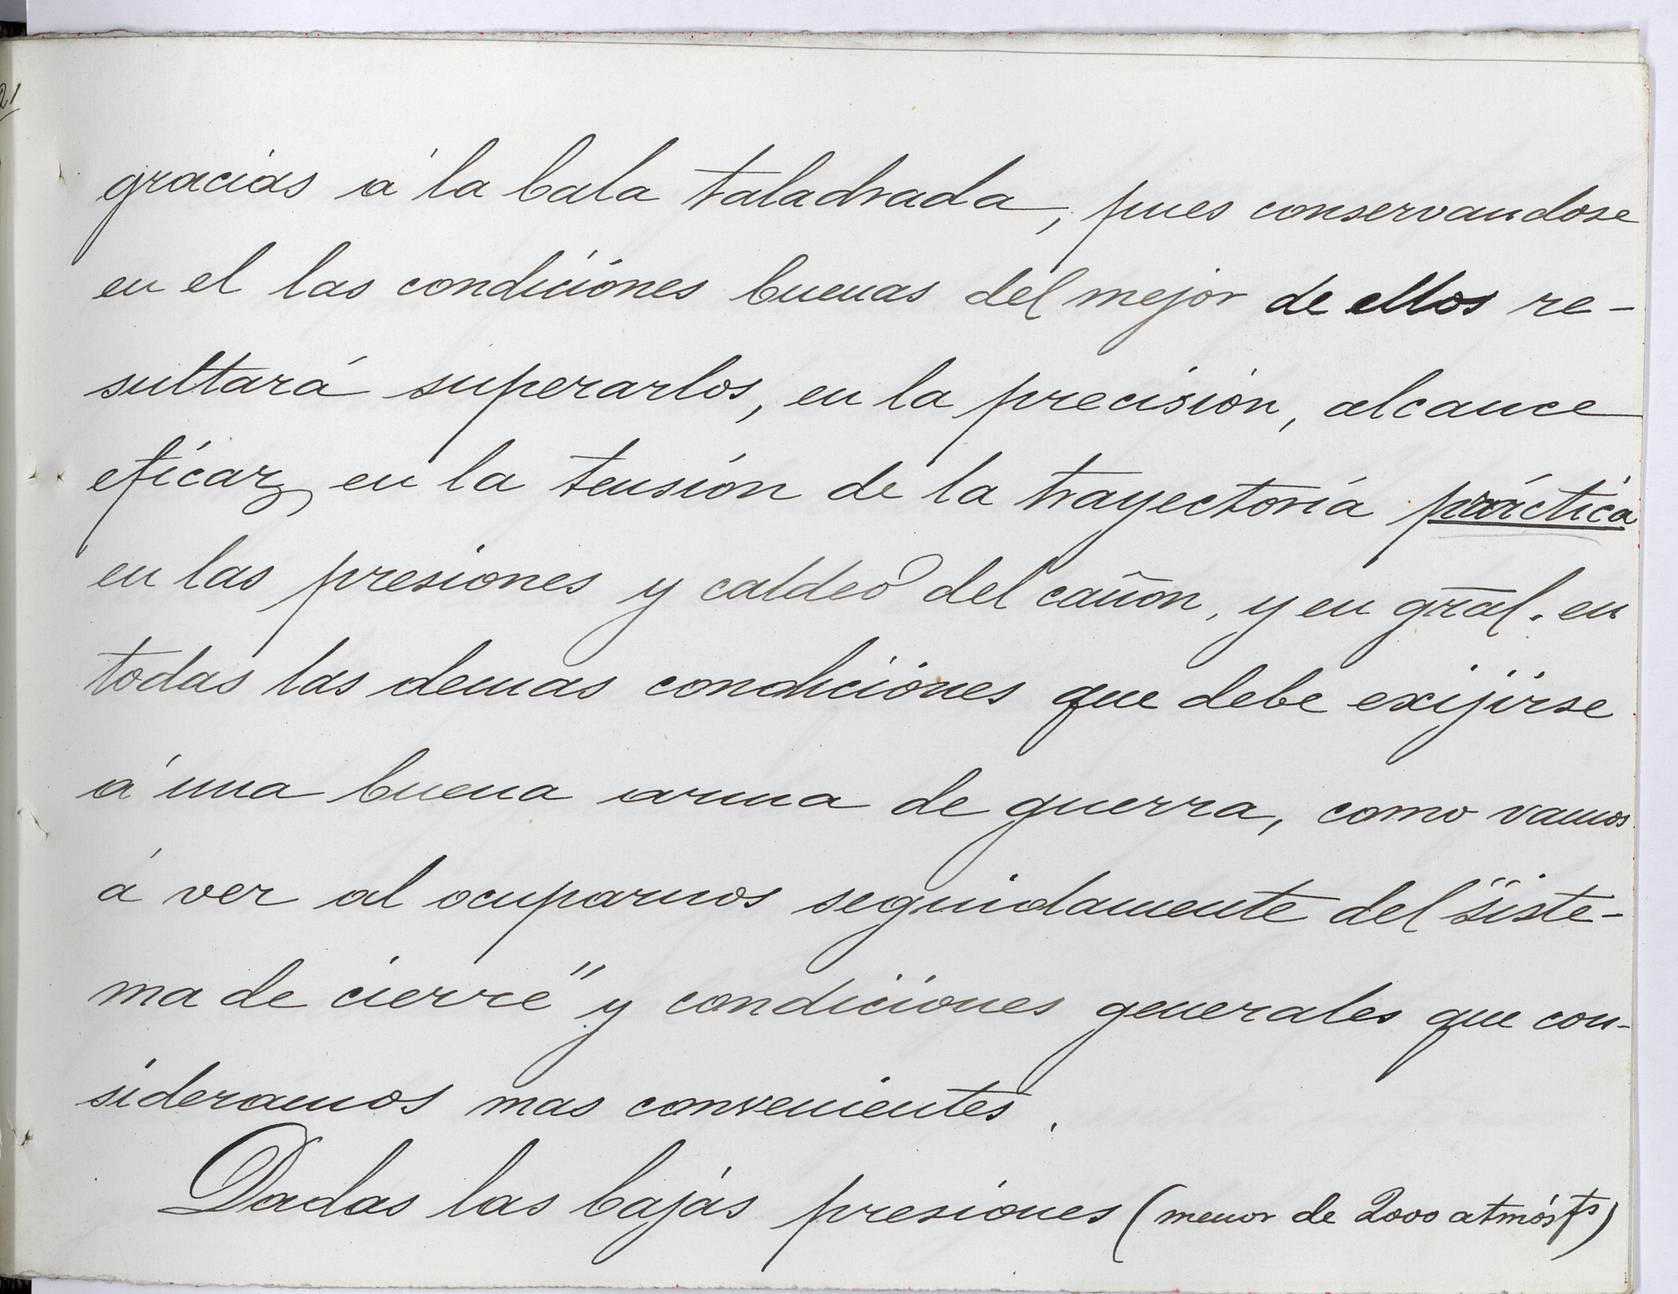 21
gracias á la bala taladrada, pues conservandose
en el las condiciónes buenas del mejor de ellos re-
sultará superarlos, en la precisión, alcance
eficaz, en la tensión de la trayectoria práctica
en las presiones y caldeo del cañon, y en gral. en
todas las demas condiciónes que debe exijirse
á una buena arma de guerra, como vamos
á ver al ocuparnos seguidamente del "siste-
ma de cierre" y condiciones generales que con-
sideramos mas convenientes.
Dadas las bajas presiones (menor de 2000 atmósfs)